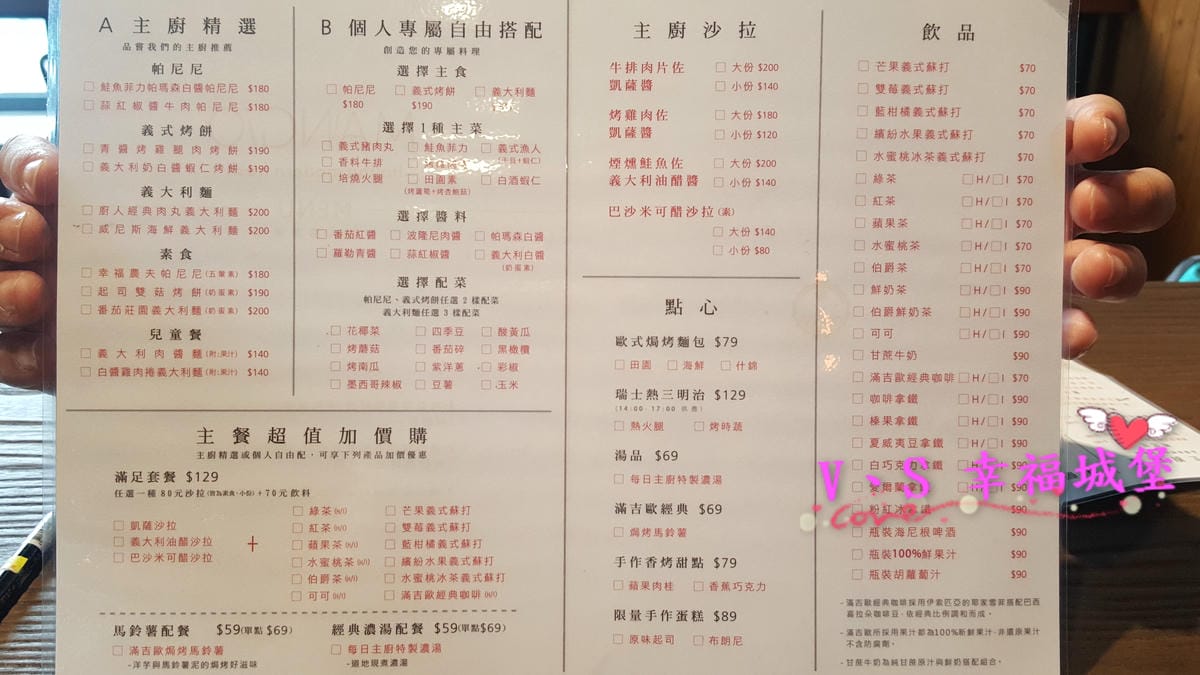 A 主廚精選
品嘗我們的主廚推薦
帕尼尼
鮭魚菲力帕瑪森白醬帕尼尼 $180
蒜紅椒醬牛肉帕尼尼 $180
義式烤餅
青醬烤雞腿肉烤餅 $190
義大利奶白醬蝦仁烤餅 $190
義大利麵
廚人經典肉丸義大利麵 $200
威尼斯海鮮義大利麵 $200
素食
幸福農夫帕尼尼(五葷素) $180
起司雙菇烤餅(奶蛋素) $190
番茄莊園義大利麵(奶蛋素) $200
兒童餐
義大利肉醬麵(附:果汁) $140
白醬雞肉捲義大利麵(附:果汁) $140
B 個人專屬自由搭配
創造您的專屬料理
選擇主食
帕尼尼 義式烤餅 義大利麵
$180 $190
選擇1種主菜
義式豬肉丸 鮭魚菲力 義式漁人
(干貝+蝦仁)
香料牛排
培燒火腿 田園素 白酒蝦仁
(烤蘆筍+烤杏鮑菇)
選擇醬料
番茄紅醬 波隆尼肉醬 帕瑪森白醬
羅勒青醬 蒜紅椒醬 義大利白醬
(奶蛋素)
選擇配菜
帕尼尼、義式烤餅任選 2 樣配菜
義大利麵任選 3 樣配菜
花椰菜 四季豆 酸黃瓜
烤蘑菇 番茄碎 黑橄欖
烤南瓜 紫洋蔥 彩椒
墨西哥辣椒 豆薯 玉米
主餐超值加價購
主廚精選或個人自由配，可享下列產品加價優惠
滿足套餐 $129
任選一種 80元沙拉(皆為素食,小份) + 70元飲料
凱薩沙拉
義大利油醋沙拉
巴沙米可醋沙拉
+
綠茶(H/I) 芒果義式蘇打
紅茶(H/I) 雙莓義式蘇打
蘋果茶(H/I) 藍柑橘義式蘇打
水蜜桃茶(H/I) 繽紛水果義式蘇打
伯爵茶(H/I) 水蜜桃冰茶義式蘇打
可可(H/I) 滿吉歐經典咖啡(H/I)
馬鈴薯配餐 $59(單點 $69)
滿吉歐焗烤馬鈴薯
-洋芋與馬鈴薯泥的焗烤好滋味
經典濃湯配餐 $59(單點$69)
每日主廚特製濃湯
-道地現煮濃湯
主廚沙拉
牛排肉片佐 大份 $200
凱薩醬 小份 $140
烤雞肉佐 大份 $180
凱薩醬 小份 $120
煙燻鮭魚佐 大份 $200
義大利油醋醬 小份 $140
巴沙米可醋沙拉(素)
大份 $140
小份 $80
點心
歐式焗烤麵包 $79
田園 海鮮 什錦
瑞士熱三明治 $129
(14:00- 17:00 供應)
熱火腿 烤時蔬
湯品 $69
每日主廚特製濃湯
滿吉歐經典 $69
焗烤馬鈴薯
手作香烤甜點 $79
蘋果肉桂 香蕉巧克力
限量手作蛋糕 $89
原味起司 布朗尼
飲品
芒果義式蘇打 $70
雙莓義式蘇打 $70
藍柑橘義式蘇打 $70
繽紛水果義式蘇打 $70
水蜜桃冰茶義式蘇打 $70
綠茶 H/ I $70
紅茶 H/ I $70
蘋果茶 H/ I $70
水蜜桃茶 H/ I $70
伯爵茶 H/ I $70
鮮奶茶 H/ I $90
伯爵鮮奶茶 H/ I $90
可可 H/ I $90
甘蔗牛奶 $90
滿吉歐經典咖啡 H/ I $70
咖啡拿鐵 H/ I $90
榛果拿鐵 H/ I $90
夏威夷豆拿鐵 H/ I $90
白巧克力拿鐵 H/ I $90
愛爾蘭拿鐵 H/ I $90
粉紅冰拿鐵 $90
瓶裝海尼根啤酒 $90
瓶裝100%鮮果汁 $90
瓶裝胡蘿蔔汁 $90
-滿吉歐經典咖啡採用伊索匹亞的耶家雪菲搭配巴西
喜拉朵咖啡豆,依經典比例調和而成。
-滿吉歐所採用果汁都為100%新鮮果汁,非還原果汁
不含防腐劑。
-甘蔗牛奶為純甘蔗原汁與鮮奶搭配組合。
V、S 幸福城堡
Love